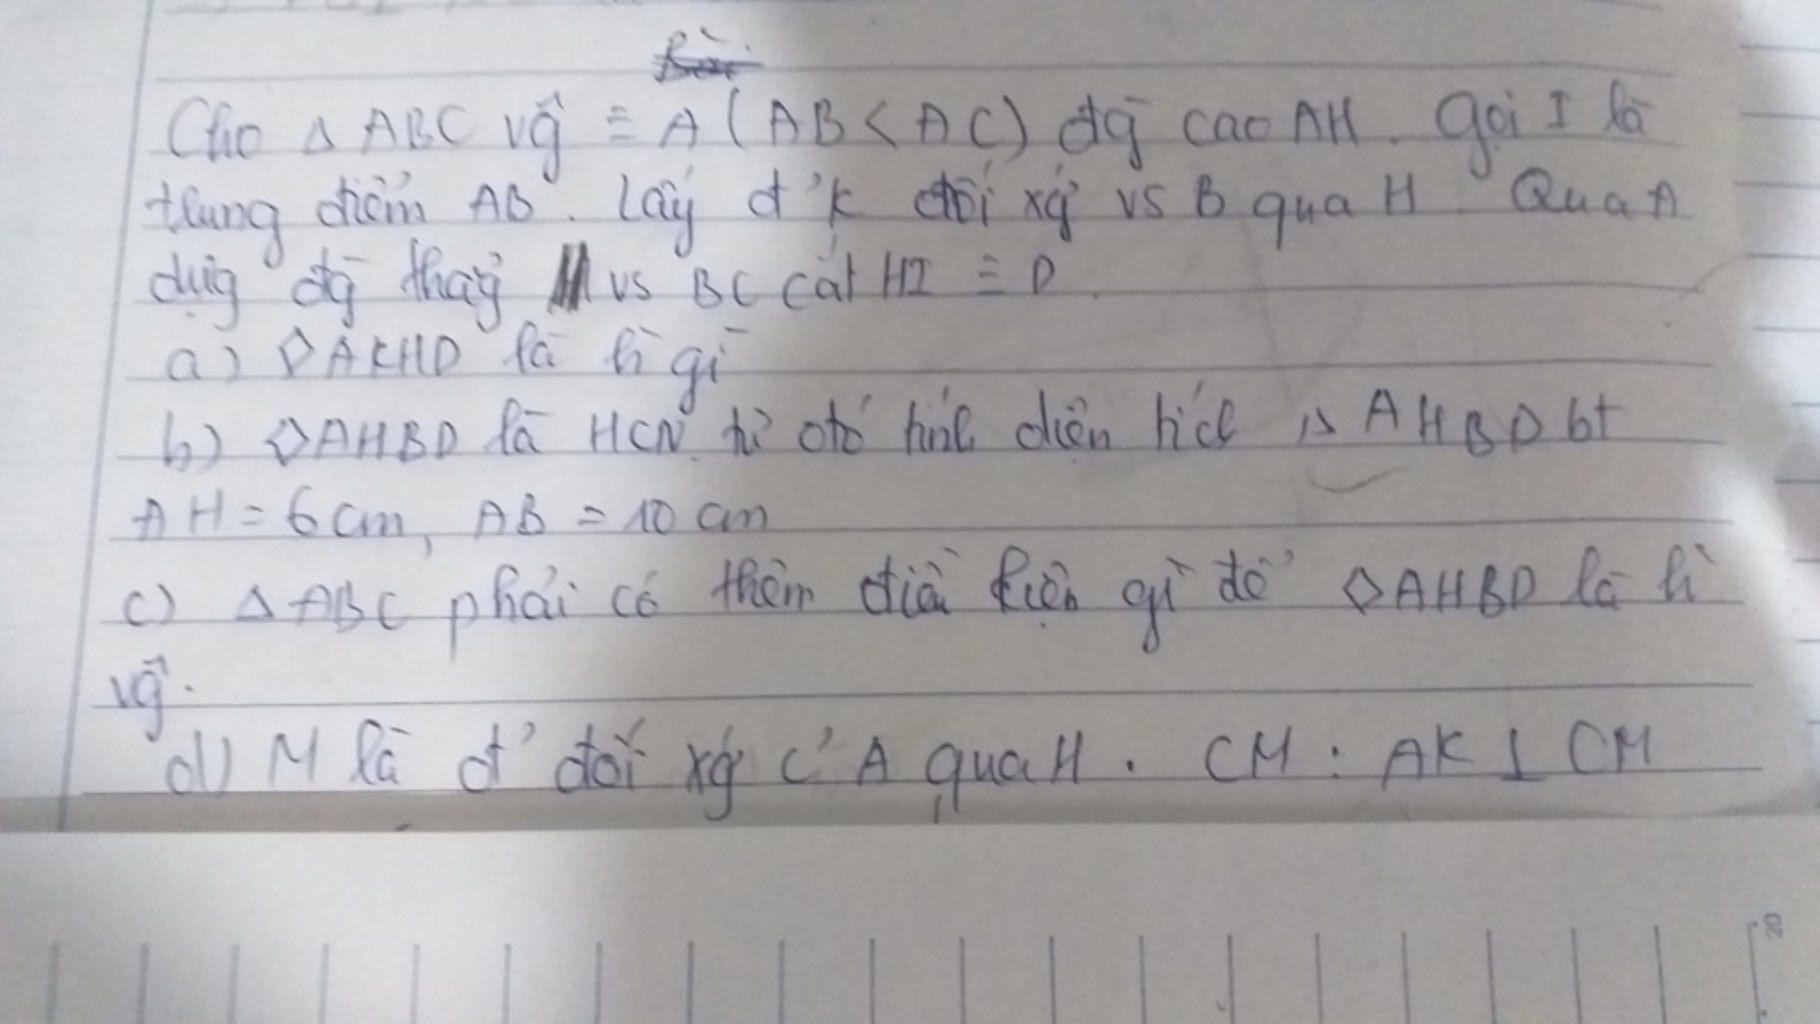 Bài
Cho △ ABC vg̃ ≡ A (AB < AC) đg̃ cao AH. Gọi I là
trung điểm AB. Lấy đ' K đối xg' vs B qua H. Qua A
dựg đg̃ thẳg // vs BC cắt HI ≡ D.
a) ◇AKHD là hì gì
b) ◇AHBD là HCN từ đó tính diện tích AHBD bt
AH = 6 cm, AB = 10 cm
c) △ ABC phải có thêm điều kiện gì để ◇AHBD là hì
vg̃.
d) M là đ' đối xg' c' A qua H. CM: AK ⊥ CM
20